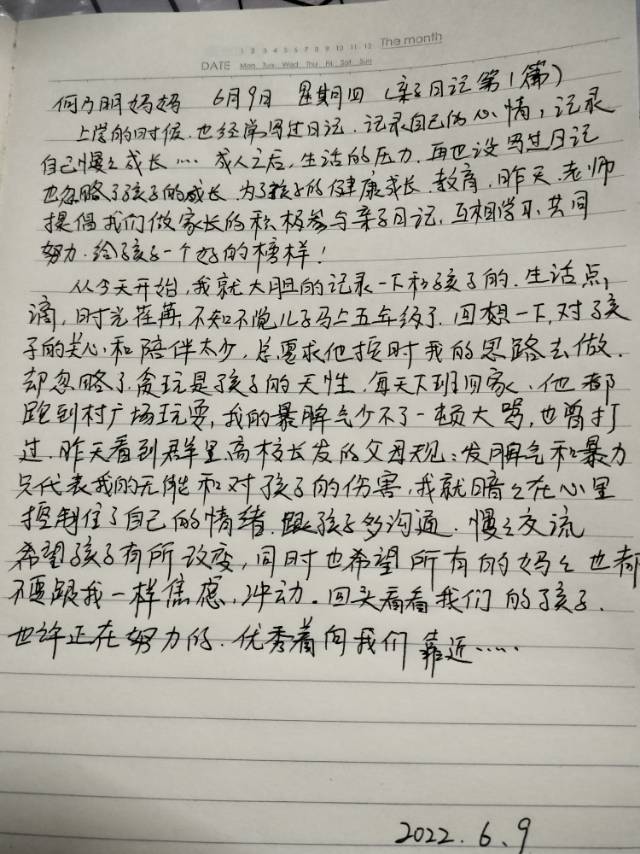 1 2 3 4 5 6 7 8 9 10 11 12 The month
DATE Mon Tue Wed Thu Fri Sat Sun
何乃明妈妈 6月9日 星期四（亲子日记第1篇）
上学的时候，也经常写过日记，记录自己的心情，记录
自己慢々成长…. 成人之后，生活的压力，再也没写过日记
也忽略了孩子的成长，为了孩子的健康成长，教育，昨天，老师
提倡我们做家长的积极参与亲子日记，互相学习，共同
努力，给孩子一个好的榜样！
从今天开始，我就大胆的记录一下和孩子的，生活点，
滴，时光荏苒，不知不觉儿子马上五年级了，回想一下，对孩
子的关心和陪伴太少，总要求他按时我的思路去做，
却忽略了贪玩是孩子的天性，每天下班回家，他都
跑到村广场玩耍，我的暴脾气少不了一顿大骂，也曾打
过，昨天看到群里高校长发的父母观：发脾气和暴力
只代表我的无能和对孩子的伤害，我就暗々在心里
控制住了自己的情绪，跟孩子多沟通，慢々交流
希望孩子有所改变，同时也希望所有的妈々也都
不要跟我一样焦虑，冲动。回头看看我们的孩子，
也许正在努力的，优秀着向我们靠近……
2022.6.9